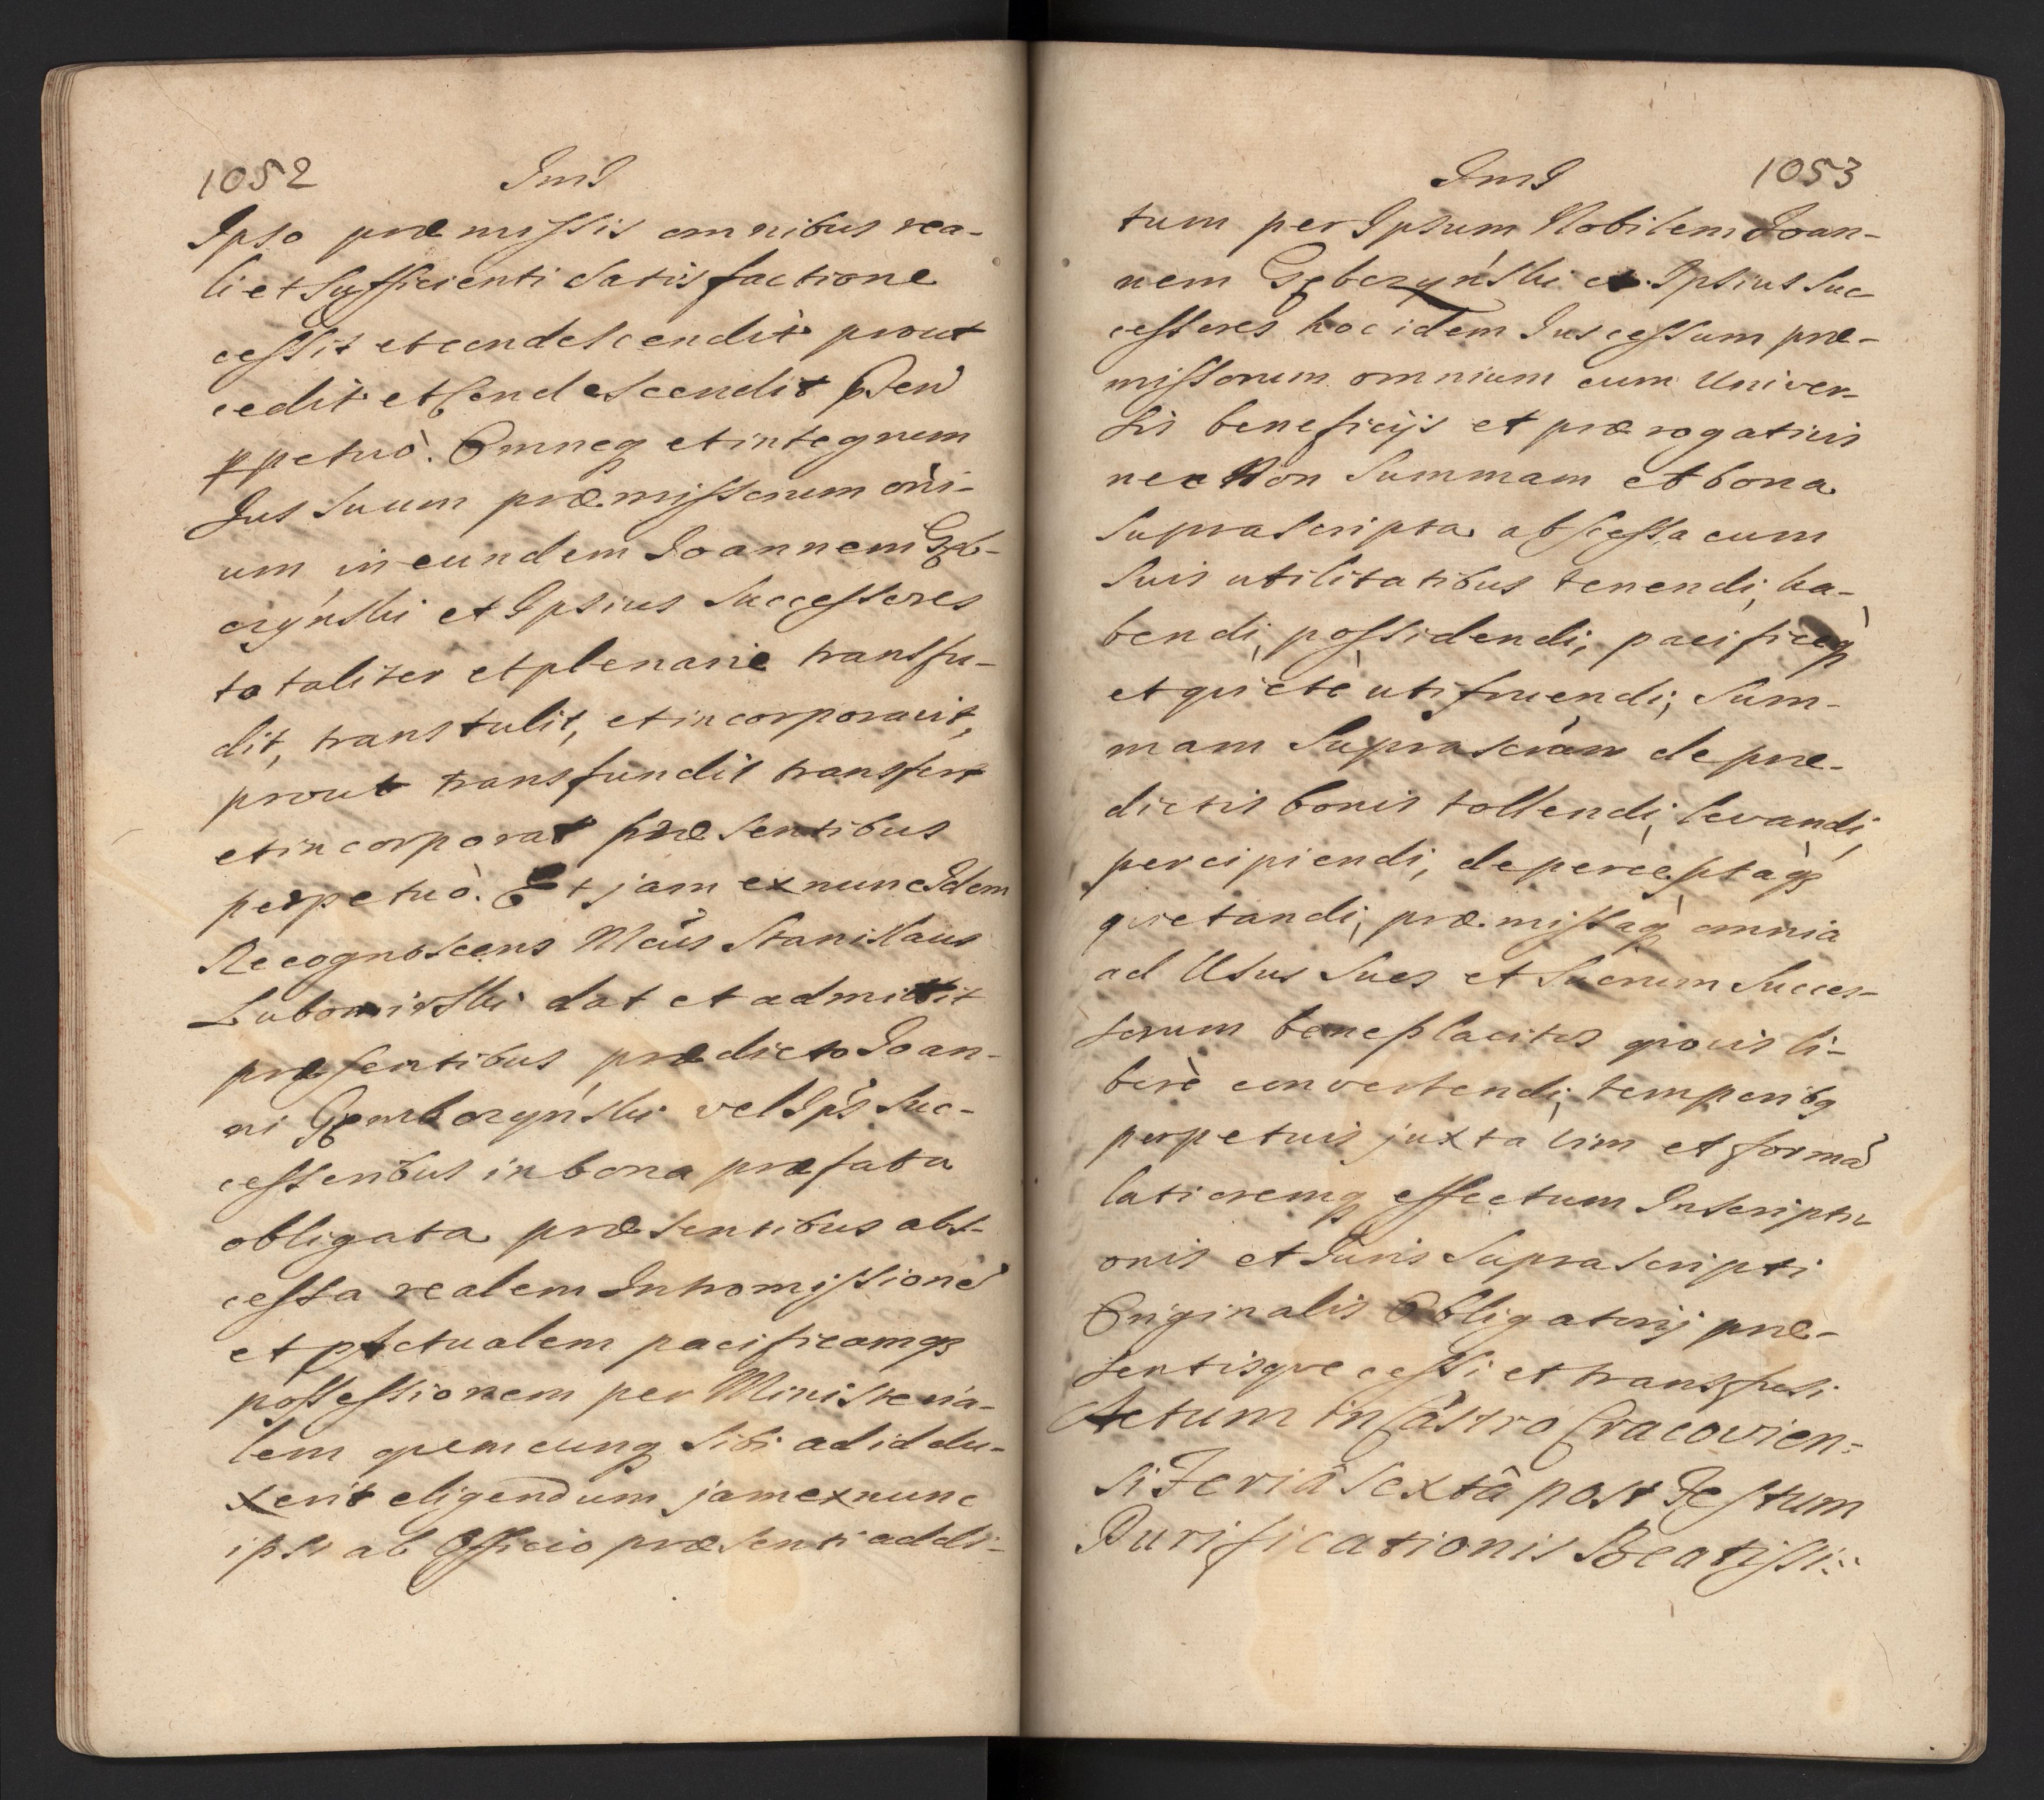 1052 JmJ
Ipso præmissis omnibus rea-
li et sufficienti satisfactione
cessit et condescendit prout
cedit et condescendit pñter
ppetuò. Omneq et integrum
Jus suum præmissorum oñi-
um in eundem Joannem Gęb-
czyński et Ipsius Successores
totaliter et plenarie transfu-
dit, transtulit, et incorporavit,
prout transfundit transfert
et incorporat præsentibus
perpetuò. Et jam ex nunc Idem
Recognoscens Mcus Stanislaus
Lubomirski dat et admittit
præsentibus prædicto Joan-
ni Gembczyński vel Ips Suc-
cessoribus in bona præfata
obligata præsentibus abs-
cessa realem Intromissionē
et actualem pacificamq
possessionem per Ministeria-
lem quemcunq sibi ad id du-
xerit eligendum jam ex nunc
ipsi ab Officio præsenti addi-
JmJ 1053
tum per Ipsum Nobilem Joan-
nem Gębczyński et Ipsius Suc
cessores hoc idem Jus cessum præ-
missorum omnium cum Univer-
sis beneficijs et prærogativis
nec Non Summam et bona
suprascripta abscessa cum
suis utilitatibus tenendi, ha-
bendi, possidendi, pacificeq
et quiete utifruendi, Sum-
mam suprascram de præ-
dictis bonis tollendi, levandi,
percipiendi, de perceptaq
quietandi, præmissaq omnia
ad Usus suos et suorum Succes-
sorum beneplacitos quovis li-
berè convertendi, temporibq
perpetuis juxta vim et formā
latioremq effectum Inscripti-
onis et Juris suprascripti
Originalis Obligatorij præ-
sentisque cessi et transfusi
Actum in Castro Cracovien-
si Feriâ Sextâ post Festum
Purificationis Beatissi-